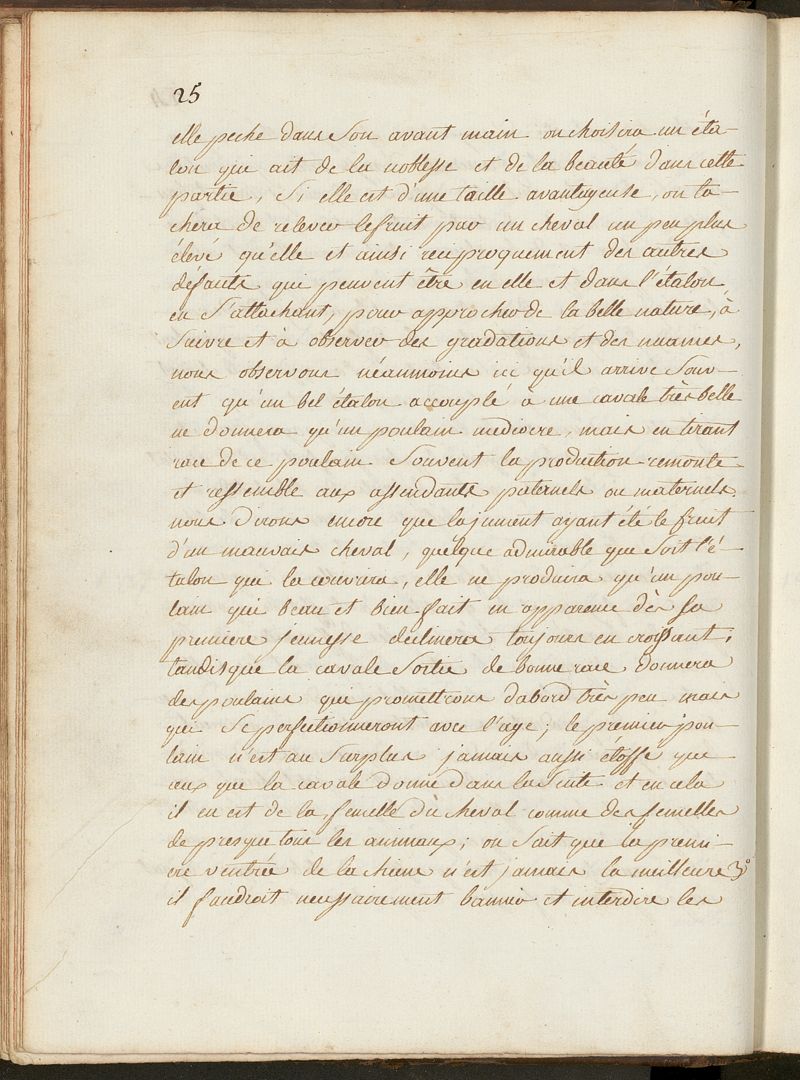 25
elle peche dans son avant main on choisira un éta-
lon qui ait de la noblesse et de la beauté dans cette
partie, Si elle est d'une taille avantageuse, on ta-
chera de relever le fruit par un cheval un peu plus
élevé qu'elle et ainsi reciproquement des autres
défauts qui peuvent être en elle et dans l'étalon,
en S'attachant, pour approcher de la belle nature, à
suivre et à observer des gradations et des nuances,
nous observons néanmoins ici qu'il arrive souv-
ent qu'un bel étalon accouplé à une cavale très belle
ne donnera qu'un poulain mediocre, mais en tirant
race de ce poulain Souvent la production remonte
et ressemble aux assendants paternels ou maternels.
nous dirons encore que la jument ayant été le fruit
d'un mauvais cheval, quelque admirable que soit l'é-
talon qui la couvrira, elle ne produira qu'un pou-
lain qui beau et bien fait en apparence dès sa
premiere jeunesse declinera toujours en croissant;
tandisque la cavale Sortie de bonne race donnera
des poulains qui promettrons d'abord très peu mais
qui Se perfectionneront avec l'age; le premier pou-
lain n'est au Surplus jamais aussi étoffé que
ceux que la cavale donne dans la Suite et en cela
il en est de la femelle du cheval comme des femelles
de presque tous les animaux; on Sait que la premi-
ere ventrée de la chiene n'est jamais la meilleure 3°
il faudroit necessairement bannir et interdire les